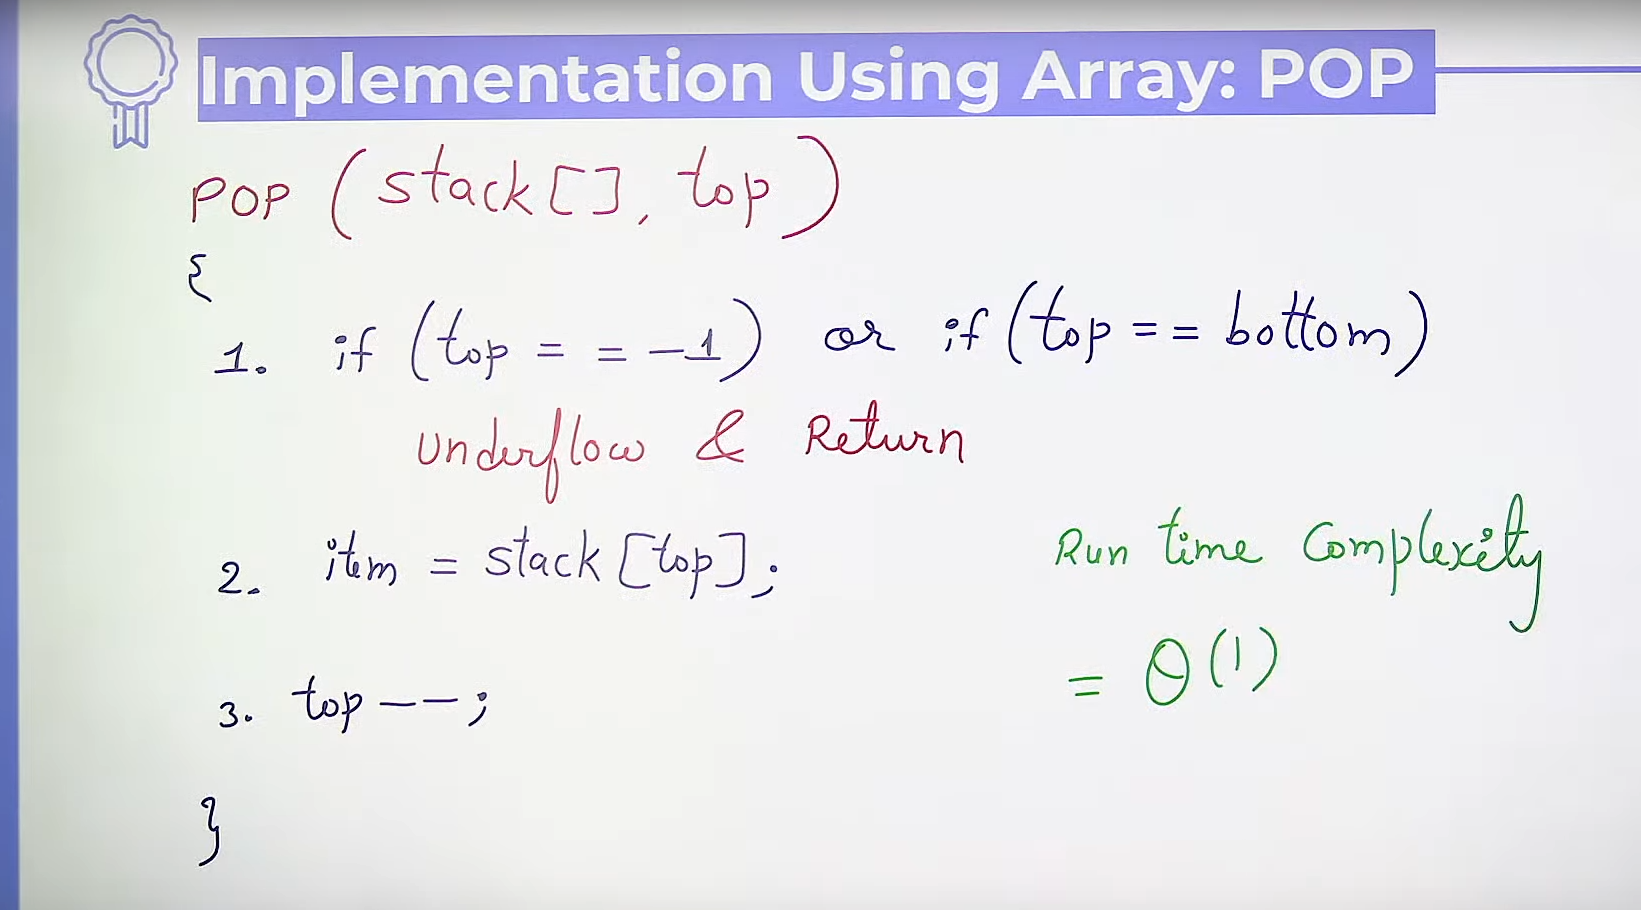 Implementation Using Array: POP
POP (stack[], top)
{
1. if (top = = -1) or if (top == bottom)
Underflow & Return
2. item = stack [top];
Run time Complexity
= Θ(1)
3. top --;
}